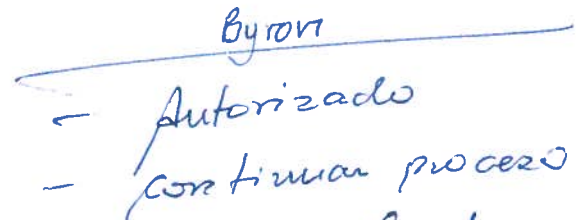 Byron
- Autorizado
- continuar proceso